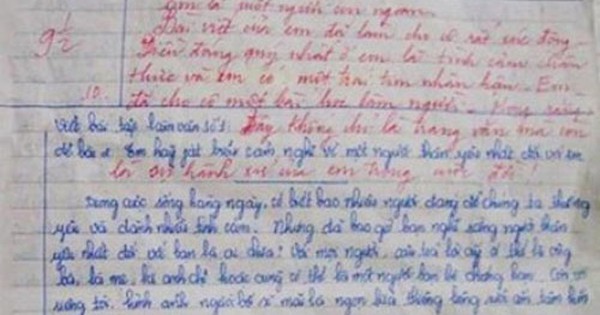 Em là một người con ngoan.
Bài viết của em đã làm cho cô rất xúc động.
9 1/2
Điều đáng quý nhất ở em là tình cảm chân
thực và em có một trái tim nhân hậu. Em
đã cho cô một bài học làm người. Mong rằng
Viết bài tập làm văn số 1: Đây không chỉ là trang văn mà còn
Đề bài: Em hãy phát biểu cảm nghĩ về một người thân yêu nhất đối với em
là sự hành xử của em trong cuộc đời!
Trong cuộc sống hàng ngày, có biết bao nhiêu người đáng để chúng ta thương
yêu và dành nhiều tình cảm. Nhưng đã bao giờ bạn nghĩ rằng người thân
yêu nhất đối với bạn là ai chưa? Với mọi người, câu trả lời ấy có thể là ông
bà, là mẹ, là anh chị hoặc cũng có thể là một người bạn bè chẳng hạn. Còn với
riêng tôi, hình ảnh người bố sẽ mãi là ngọn lửa thiêng liêng sưởi ấm tâm hồn